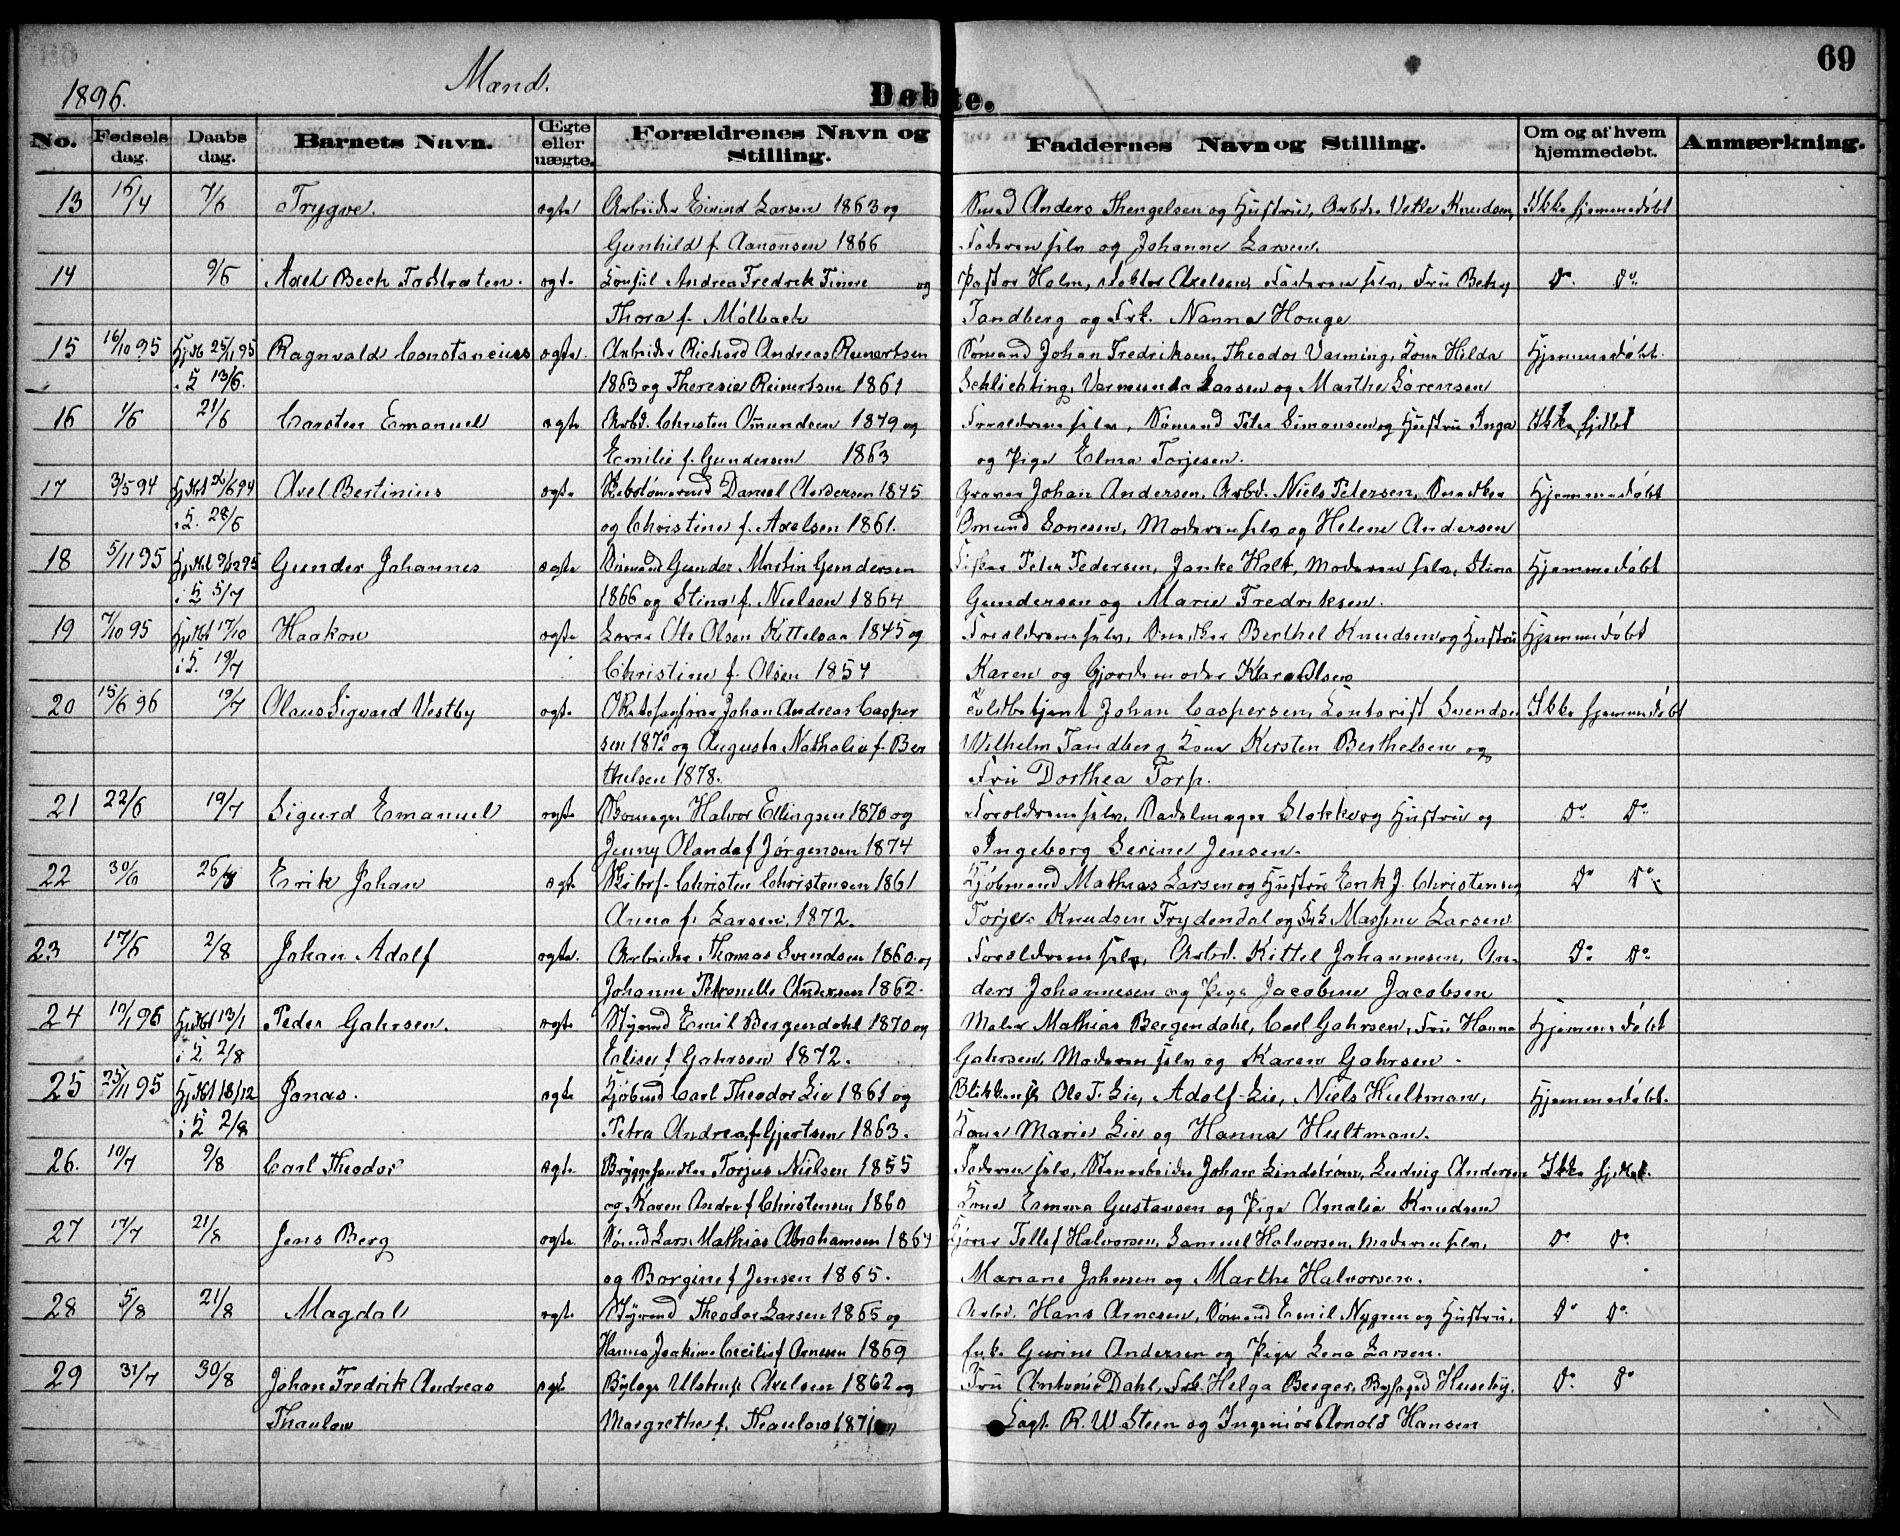 69
1896.
Mænd.
Døbte.
No. Fødsels dag. Daabs dag. Barnets Navn. Œgte eller uægte. Forældrenes Navn og Stilling. Faddernes Navn og Stilling. Om og af hvem hjemmedøbt. Anmærkning.
13 15/4 7/6 Trygve. ægte Arbeider Eivind Larsen 1863 og Smed Anders Thengelsen og Hustru, Arbdr. Vetle Knudsen, Ikke hjemmedøbt
Gunhild f. Aanonsen 1866 Faderen selv og Johanne Larsen.
14 9/6 Axel Bech Fostraten. ægte Konsul Andrea Fredrik Finne og Pastor Holm, Doktor Axelsen, Faderen selv, Fru Betzy Do. Do.
Thora f. Mølbach Tandberg og Frk. Nanna Houge
15 16/10 95 Hjdbt 25/11 95 Ragnvald Constancius ægte. Arbeider Richard Andreas Reinertsen Sømand Johan Fredriksen, Theodor Varming, Kone Hilda Hjemmedøbt.
i K 13/6. 1863 og Theresie Reinertsen 1861 Schlichting, Varmunda Larsen og Marthe Sørensen
16 1/6 21/6 Carsten Emanuel ægte Arbd. Christen Omundsen 1849 og Forældrene selv, Sømand Peter Simonsen og Hustru Inga Ikke hjdbt
Emilie f. Gundersen 1863 og Pige Elma Torjesen.
17 3/5 94 Hjdbt 26/6 94 Axel Bertinius ægte Skibstømmermd Daniel Andersen 1845 Graver Johan Andersen, Arbd. Niels Petersen, Snedker Hjemmedøbt
i K. 28/6 og Christine f. Axelsen 1861. Omund Lonesen, Moderen selv og Helene Andersen
18 5/11 95 Hjdbt 9/12 95 Gunder Johannes ægte Sømand Gunder Martin Gundersen Fisker Peter Pedersen, Janke Holt, Moderen selv, Stina Hjemmedøbt
i K 5/7 1866 og Stina f. Nielsen 1864 Gundersen og Marie Fredriksen.
19 7/10 95 Hjdbt 17/10 Haakon ægte Garver Ole Olsen Kittelsaa 1845 og Forældrene selv, Snedker Berthel Knudsen og Hustru Hjemmedøbt
i K. 19/7 Christine f. Olsen 1854 Karen og Gjordemoder Klara Olsen
20 15/6 96 19/7 Olaus Sigvard Vestby ægte Skibsfører Johan Andreas Casper Toldbetjent Johan Caspersen, Kontorist Svendsen Ikke hjemmedøbt
sen 1872 og Augusta Nathalie f. Ber Wilhelm Tandberg Kone Kirsten Berthelsen og
thelsen 1878. Fru Dorthea Torp.
21 22/6 19/7 Sigurd Emanuel ægte Skomager Halvor Ellingsen 1870 og Forældrene selv, Sadelmager Stokke og Hustru og Do Do
Jenny Olanda f Jørgensen 1874 Ingeborg Serine Jensen.
22 30/6 26/7 Erik Johan ægte Skibsf. Christen Christensen 1861 Kjøbmand Mathias Larsen og Hustru Erik J. Christensen Do Do
Anna f. Larsen, 1872. Torjer Knudsen Frydendal og Frk. Larsen
23 17/6 2/8 Johan Adolf ægte. Arbeider Thomas Svendsen 1860 og Forældrene selv, Arbd. Kittel Johannesen, An- Do Do
Johanne Petronelle Andersen 1862. ders Johannesen og Pige Jacobine Jacobsen
24 10/1 96 Hjdbt 13/1 Peder Gahrsen. ægte Styrmd Emil Bergendahl 1870 og Maler Mathias Bergendahl, Carl Gahrsen, Fru Hanna Hjemmedøbt
i K 2/8 Elise f Gahrsen 1872. Gahrsen, Moderen selv og Karen Gahrsen -
25 25/11 95 Hjdbt 18/12 Jonas. ægte Kjøbmd Carl Theodor Lie 1861 og Blikkensl Ole T. Lie, Adolf Lie, Niels Hultman, Hjemmedøbt.
i K 2/8 Petra Andrea f. Gjertsen 1863. Kone Marie Lie og Hanna Hultman.
26. 10/7 9/8 Carl Theodor ægte Bryggehandler Torjus Nielsen 1855 Faderen selv, Stenarbeider Johan Lindstrøm, Ludvig Andersen Ikke hjdbt.
og Karen Andrea f Christensen 1860 Kone Emma Gustavsen og Pige Amalie Knudsen
27 17/7 21/8 Jens Berg ægte Sømd Lars Mathias Abrahamsen 1864 Kjører Tellef Halvorsen, Samuel Halvorsen, Moderen selv, Do Do
og Borgine f Jensen 1865. Mariane Johnsen og Marthe Halvorsen.
28 5/8 21/8 Magdal ægte Styrmd Theodor Larsen 1865 og Arbd. Hans Arnesen, Sømand Emil Nygren og Hustru, Do Do
Hanna Joakime Cecilie f Arnesen 1869 Enke Gurine Andersen og Pige Lena Larsen.
29 31/7 30/8 Johan Fredrik Andreas ægte Bylæge Axelsen 1862 og Fru Antonie Dahl, Frk. Helga Berger, Byfoged Huseby, Do. Do
Thaulow Margrethe f. Thaulow 1871 Kapt. R. W Steen og Ingeniør Arnold Hansen